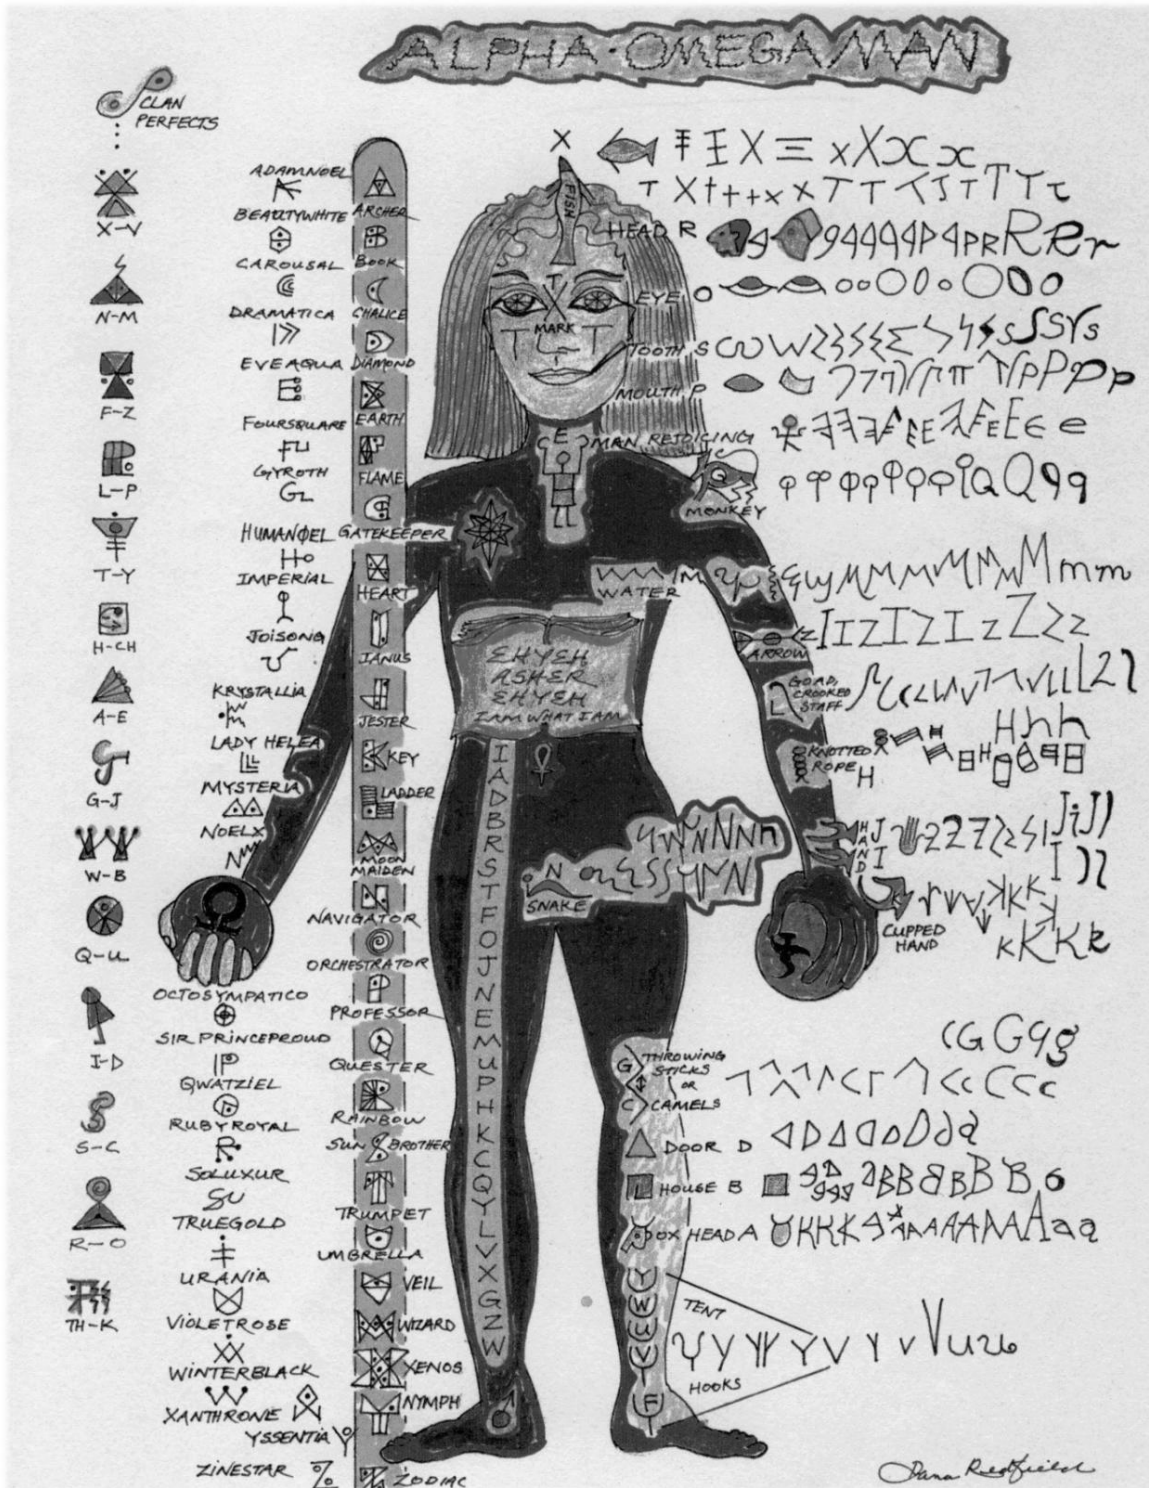 ALPHA·OMEGA MAN
CLAN
PERFECTS
X-V
N-M
F-Z
L-P
T-Y
H-CH
A-E
G-J
W-B
Q-U
I-D
S-C
R-O
TH-K
ADAMNOEL
BEAUTYWHITE
CAROUSAL
DRAMATICA
EVEAQUA
FOURSQUARE
GYROTH
HUMANOEL
IMPERIAL
JOISONG
KRYSTALLIA
LADY HELEA
MYSTERIA
NOELX
OCTOSYMPATICO
SIR PRINCEPROUD
QWATZIEL
RUBYROYAL
SOLUXUR
TRUEGOLD
URANIA
VIOLETROSE
WINTERBLACK
XANTHRONE
YSSENTIA
ZINESTAR
ARCHER
BOOK
CHALICE
DIAMOND
EARTH
FLAME
GATEKEEPER
HEART
JANUS
JESTER
KEY
LADDER
MOON
MAIDEN
NAVIGATOR
ORCHESTRATOR
PROFESSOR
QUESTER
RAINBOW
SUN BROTHER
TRUMPET
UMBRELLA
VEIL
WIZARD
XENOS
NYMPH
ZODIAC
X
FISH
T
MARK
T T
E
Ω
EHYEH
ASHER
EHYEH
I AM WHAT I AM
IADBRSTFOJNEMUPHKCQYLVXGZW
HEAD R
EYE O
TOOTH S
MOUTH P
MAN REJOICING
MONKEY
WATER M
ARROW
Z
L
GOAD,
CROOKED
STAFF
KNOTTED
ROPE H
HAND
J
I
CUPPED
HAND
N
SNAKE
G
C
THROWING
STICKS
OR
CAMELS
DOOR D
HOUSE B
OX HEAD A
Y
W
U
V
F
TENT
HOOKS
Dana Redfield